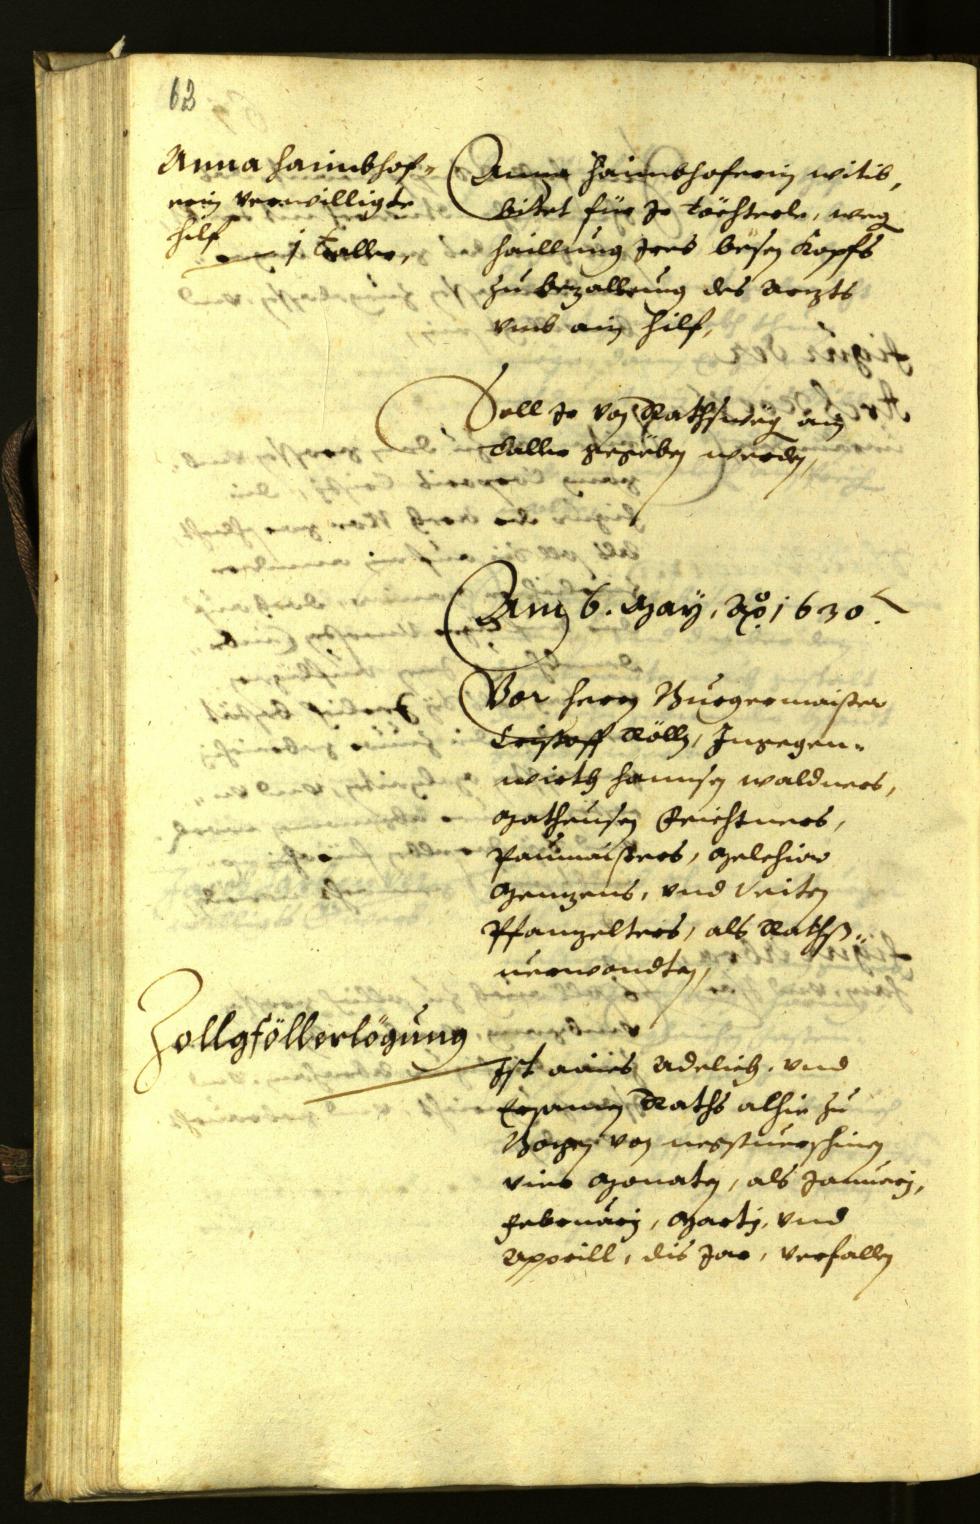 62
Anna Haimbhof-
erin verwilligte
hilf
1 Taller,
Anna Haimbhoferin witib,
bitet für Ir Töchterle, weg
haillung Ires bösen Kopfs
zu bezallung des Arzts
vmb ain hilf,
Soll Ir von Rathswëg ain
Taller gegëben werden,
Am 6. May, Ao. 1630.
Vor herrn Burgermaister
Cristoff Röllen, Ingegen-
wirth hannsen waldners,
Matheusen Feichtners,
Paumaisters, Melchior
Menzens, vnd Veiten
Pfanzelters, als Raths-
uerwondten,
Zollgföllerlögung
Ist aines Adelich. vnd
Ersamen Raths alhie zu
Bozen von negstuerschinen
vier Monaten, als Januarij,
Februarij, Martij, vnd
Apprill, dis Jar, verfallen